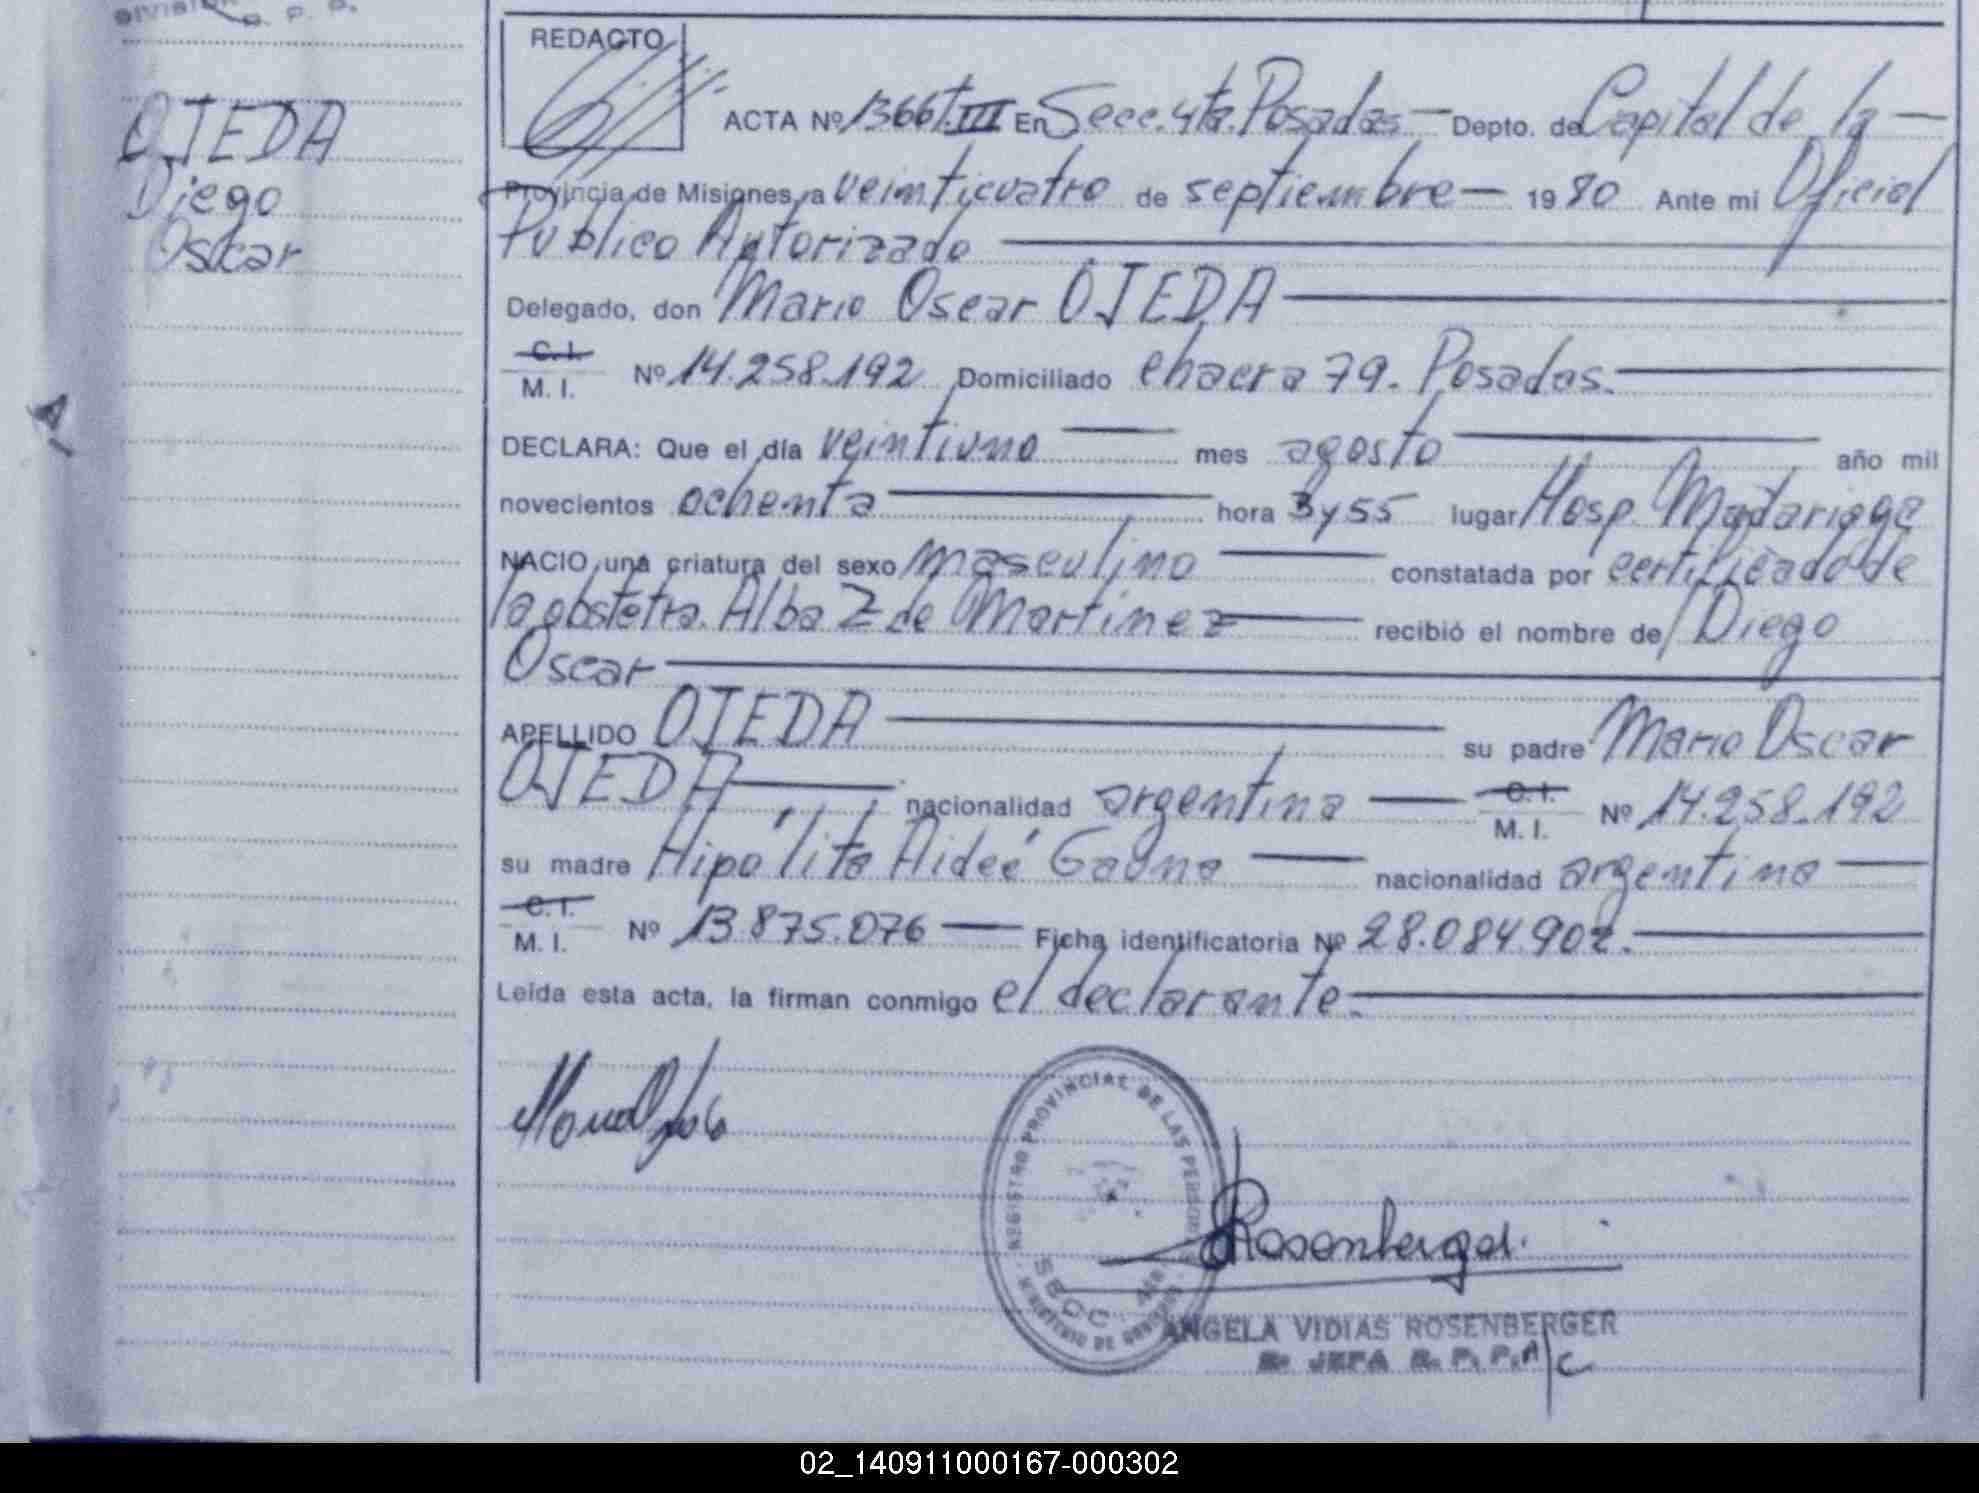 DIVISION R. P. P.
REDACTO
ACTA Nº 1366 T. III En Secc. 4ta. Posadas — Depto. de Capital de la —
Provincia de Misiones, a veinticuatro de septiembre — 1980 Ante mi Oficial
Público Autorizado
Delegado, don Mario Oscar OJEDA
C. I.
M. I. Nº 14.258.192 Domiciliado chacra 79. Posadas.
DECLARA: Que el día veintiuno mes agosto año mil
novecientos ochenta hora 3 y 55 lugar Hosp. Madariaga
NACIO una criatura del sexo masculino constatada por certificado de
la obstetra. Alba Z de Martinez recibió el nombre de Diego
Oscar
APELLIDO OJEDA su padre Mario Oscar
OJEDA nacionalidad argentina C. I. M. I. Nº 14.258.192
su madre Hipólita Aideé Gauna nacionalidad argentina
C. I.
M. I. Nº 13.875.076 Ficha identificatoria Nº 28.084.902.
Leída esta acta, la firman conmigo el declarante.
OJEDA
Diego
Oscar
REGISTRO PROVINCIAL DE LAS PERSONAS
SECC. 4ta
MINISTERIO DE GOBIERNO
Rosenberger.
ANGELA VIDIAS ROSENBERGER
JEFA R. P. P. A/C
02_140911000167-000302